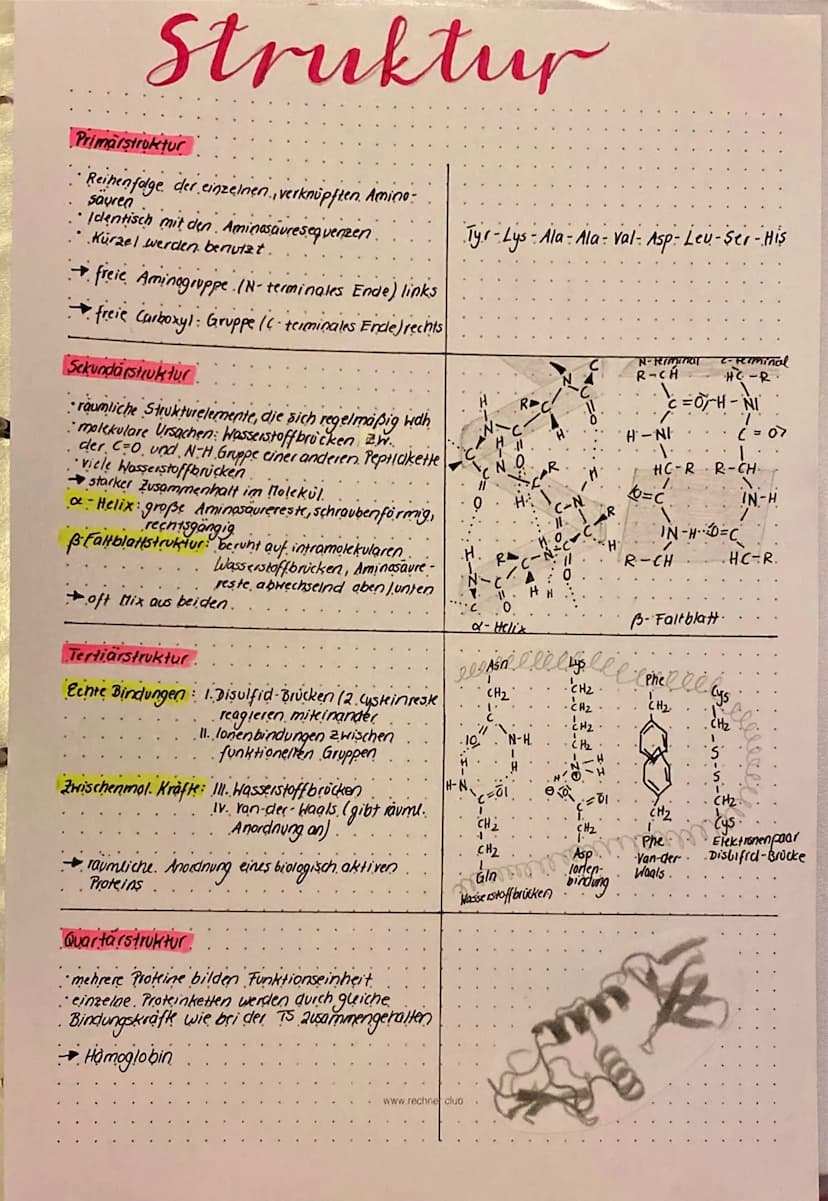 Struktur
Primärstruktur
· Reihenfolge der einzelnen, verknüpften Amino-
säuren
· Identisch mit den Aminosäuresequenzen
· Kürzel werden benutzt
→ freie Aminogruppe (N-terminales Ende) links
→ freie Carboxyl-Gruppe (C-terminales Ende) rechts
Tyr-Lys-Ala-Ala-Val-Asp-Leu-Ser-His
Sekundärstruktur
· räumliche Strukturelemente, die sich regelmäßig wdh
· molekulare Ursachen: Wasserstoffbrücken zw.
der C=O und N-H Gruppe einer anderen Peptidkette
· viele Wasserstoffbrücken
→ starker Zusammenhalt im Molekül
α-Helix: große Aminosäurereste, schraubenförmig,
rechtsgängig
β-Faltblattstruktur: beruht auf intramolekularen
Wasserstoffbrücken, Aminosäure-
reste abwechselnd oben/unten
→ oft Mix aus beiden
α-Helix
N-terminal C-terminal
R-CH HC-R
C=O H-N
H-N C=O
HC-R R-CH
O=C N-H
N-H O=C
R-CH HC-R
β-Faltblatt
Tertiärstruktur
Echte Bindungen: I. Disulfid-Brücken (2 Cysteinreste
reagieren miteinander
II. Ionenbindungen zwischen
funktionellen Gruppen
Zwischenmol. Kräfte: III. Wasserstoffbrücken
IV. van-der-Waals (gibt räuml.
Anordnung an)
→ räumliche Anordnung eines biologisch aktiven
Proteins
Asn
CH2
C
N-H
H
H-N
C=O
CH2
CH2
Gln
Wasserstoffbrücken
Lys
CH2
CH2
CH2
CH2
N
C=O
CH2
Asp
Ionen-
bindung
Phe
CH2
CH2
Phe
Van-der
Waals
Cys
CH2
S
S
CH2
Cys
Elektronenpaar
Disulfid-Brücke
Quartärstruktur
· mehrere Proteine bilden Funktionseinheit
· einzelne Proteinketten werden durch gleiche
Bindungskräfte wie bei der TS zusammengehalten
→ Hämoglobin